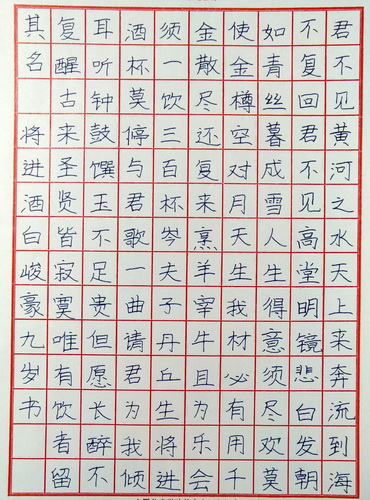 君不见黄河之水天上来奔流到海
不复回君不见高堂明镜悲白发朝
如青丝暮成雪人生得意须尽欢莫
使金樽空对月天生我材必有用千
金散尽还复来烹羊宰牛且为乐会
须一饮三百杯岑夫子丹丘生将进
酒杯莫停与君歌一曲请君为我倾
耳听钟鼓馔玉不足贵但愿长醉不
复醒古来圣贤皆寂寞唯有饮者留
其名 将进酒白峻豪九岁书